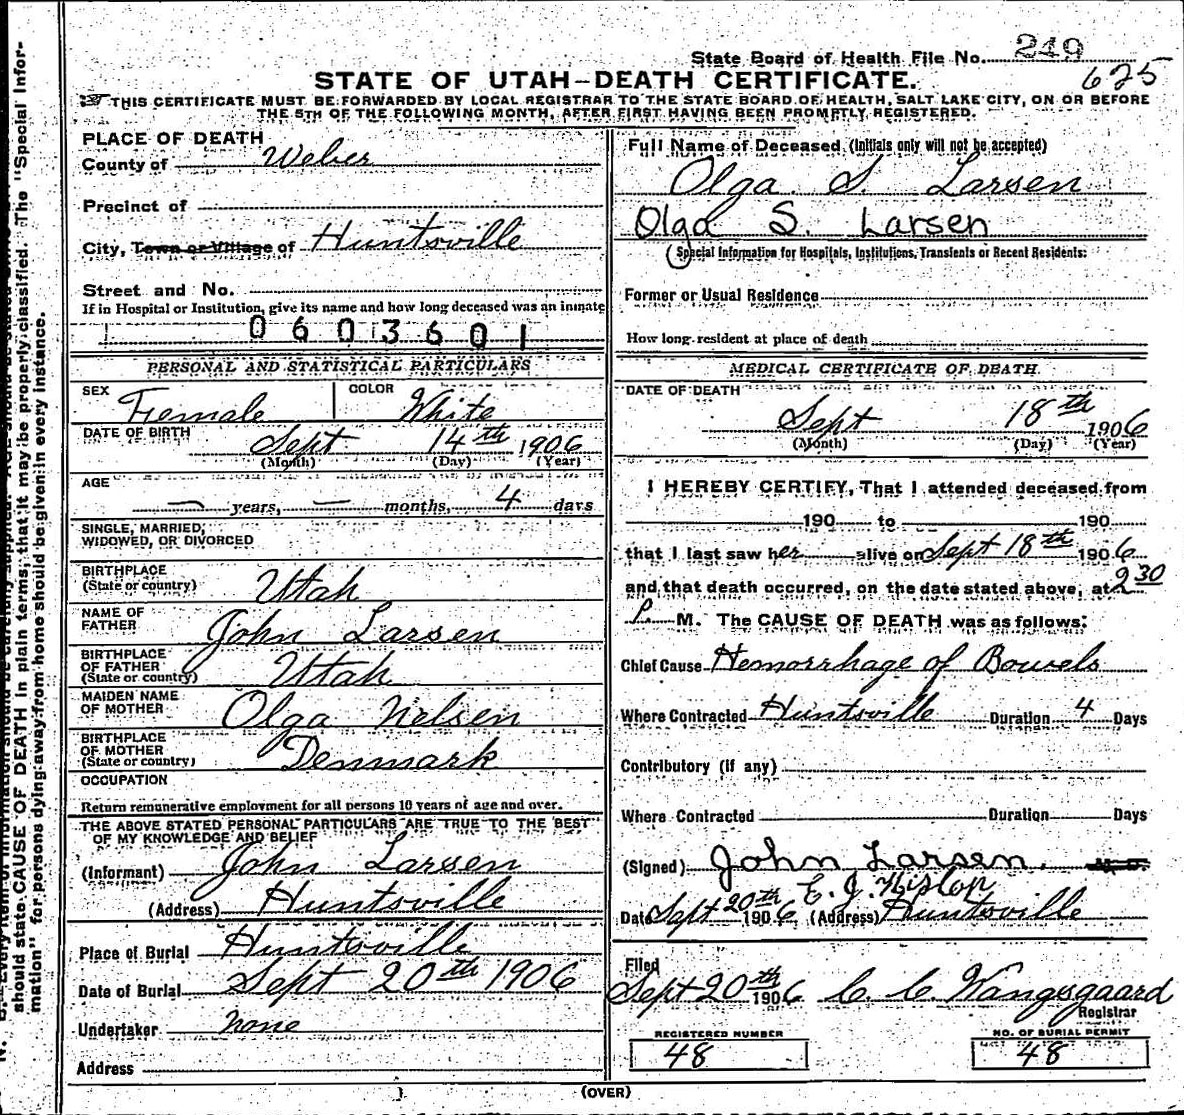 State Board of Health File No. 249
625
STATE OF UTAH—DEATH CERTIFICATE.
THIS CERTIFICATE MUST BE FORWARDED BY LOCAL REGISTRAR TO THE STATE BOARD OF HEALTH, SALT LAKE CITY, ON OR BEFORE
THE 5TH OF THE FOLLOWING MONTH, AFTER FIRST HAVING BEEN PROMPTLY REGISTERED.
PLACE OF DEATH
County of Weber
Precinct of
City, Town or Village of Huntsville
Street and No.
If in Hospital or Institution, give its name and how long deceased was an inmate
0603601
PERSONAL AND STATISTICAL PARTICULARS
SEX Female COLOR White
DATE OF BIRTH Sept 14th 1906
(Month) (Day) (Year)
AGE
— years, — months, 4 days
SINGLE, MARRIED,
WIDOWED, OR DIVORCED
BIRTHPLACE
(State or country) Utah
NAME OF
FATHER John Larsen
BIRTHPLACE
OF FATHER
(State or country) Utah
MAIDEN NAME
OF MOTHER Olga Nelsen
BIRTHPLACE
OF MOTHER
(State or country) Denmark
OCCUPATION
Return remunerative employment for all persons 10 years of age and over.
THE ABOVE STATED PERSONAL PARTICULARS ARE TRUE TO THE BEST
OF MY KNOWLEDGE AND BELIEF
(Informant) John Larsen
(Address) Huntsville
Place of Burial Huntsville
Date of Burial Sept 20th 1906
Undertaker none
Address
Full Name of Deceased (Initials only will not be accepted)
Olga S. Larsen
Olga S. Larsen
(Special Information for Hospitals, Institutions, Transients or Recent Residents:
Former or Usual Residence
How long resident at place of death
MEDICAL CERTIFICATE OF DEATH
DATE OF DEATH
Sept 18th 1906
(Month) (Day) (Year)
I HEREBY CERTIFY, That I attended deceased from
190 to 190
that I last saw her alive on Sept 18th 1906
and that death occurred, on the date stated above, at 2 30
P. M. The CAUSE OF DEATH was as follows:
Chief Cause Hemorrhage of Bowels
Where Contracted Huntsville Duration 4 Days
Contributory (if any)
Where Contracted Duration Days
(Signed) John Larsen.
E. J.
Date Sept 20th 1906 (Address) Huntsville
Filed
Sept 20th 1906 C. C. Wangsgaard
Registrar
REGISTERED NUMBER
48
NO. OF BURIAL PERMIT
48
(OVER)
should state CAUSE OF DEATH in plain terms, that it may be properly classified. The "Special Infor-
mation" for persons dying away from home should be given in every instance.